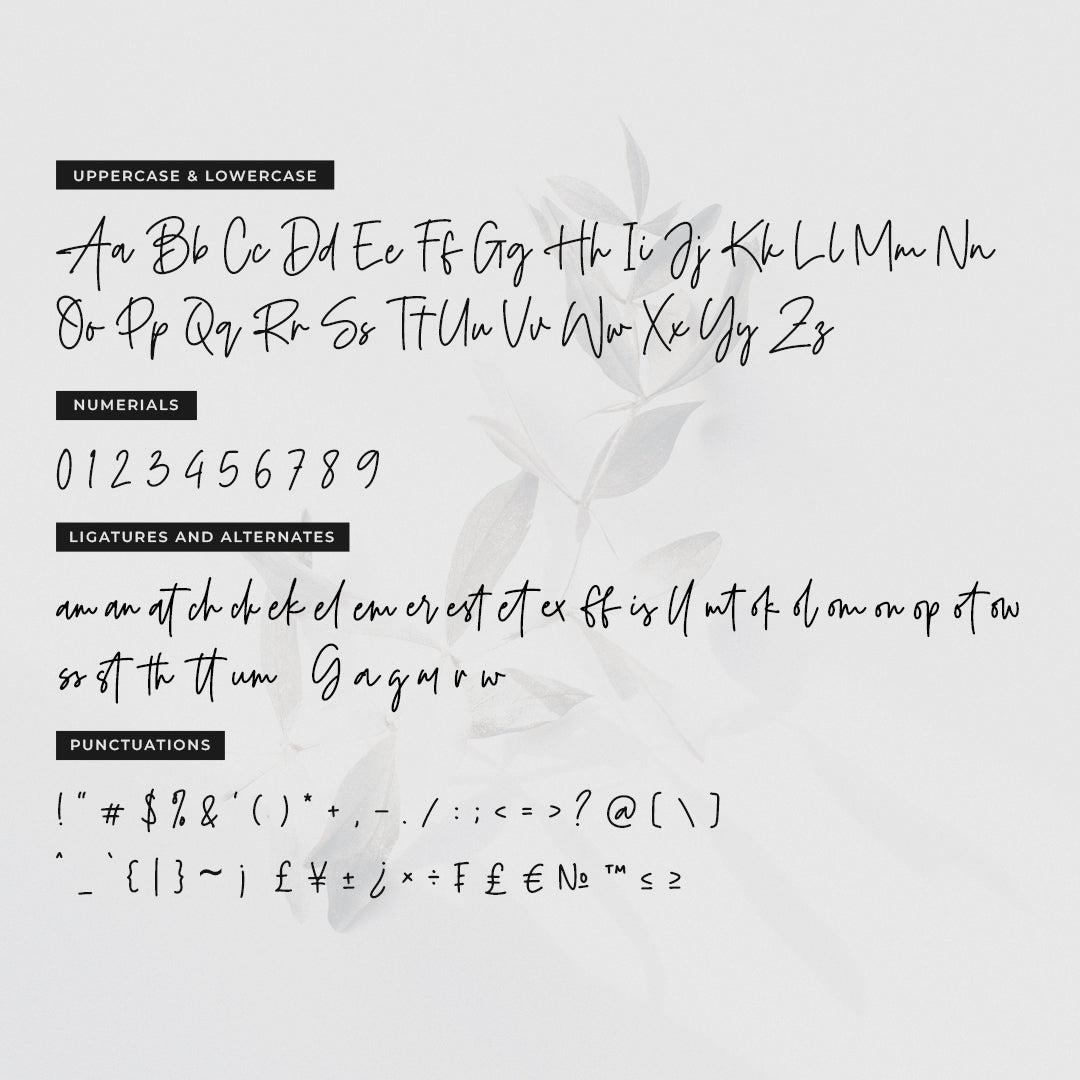 UPPERCASE & LOWERCASE
Aa Bb Cc Dd Ee Ff Gg Hh Ii Jj Kk Ll Mm Nn
Oo Pp Qq Rr Ss Tt Uu Vv Ww Xx Yy Zz
NUMERIALS
0 1 2 3 4 5 6 7 8 9
LIGATURES AND ALTERNATES
am an at ch ck ek el em er est et ex ff is ll mt ok ol om on op ot ow
ss st th tt um G a g m r w
PUNCTUATIONS
! " # $ % & ' ( ) * + , - . / : ; < = > ? @ [ \ ]
^ _ ` { | } ~ ¡ £ ¥ ± ¿ × ÷ ₣ ₤ € № ™ ≤ ≥